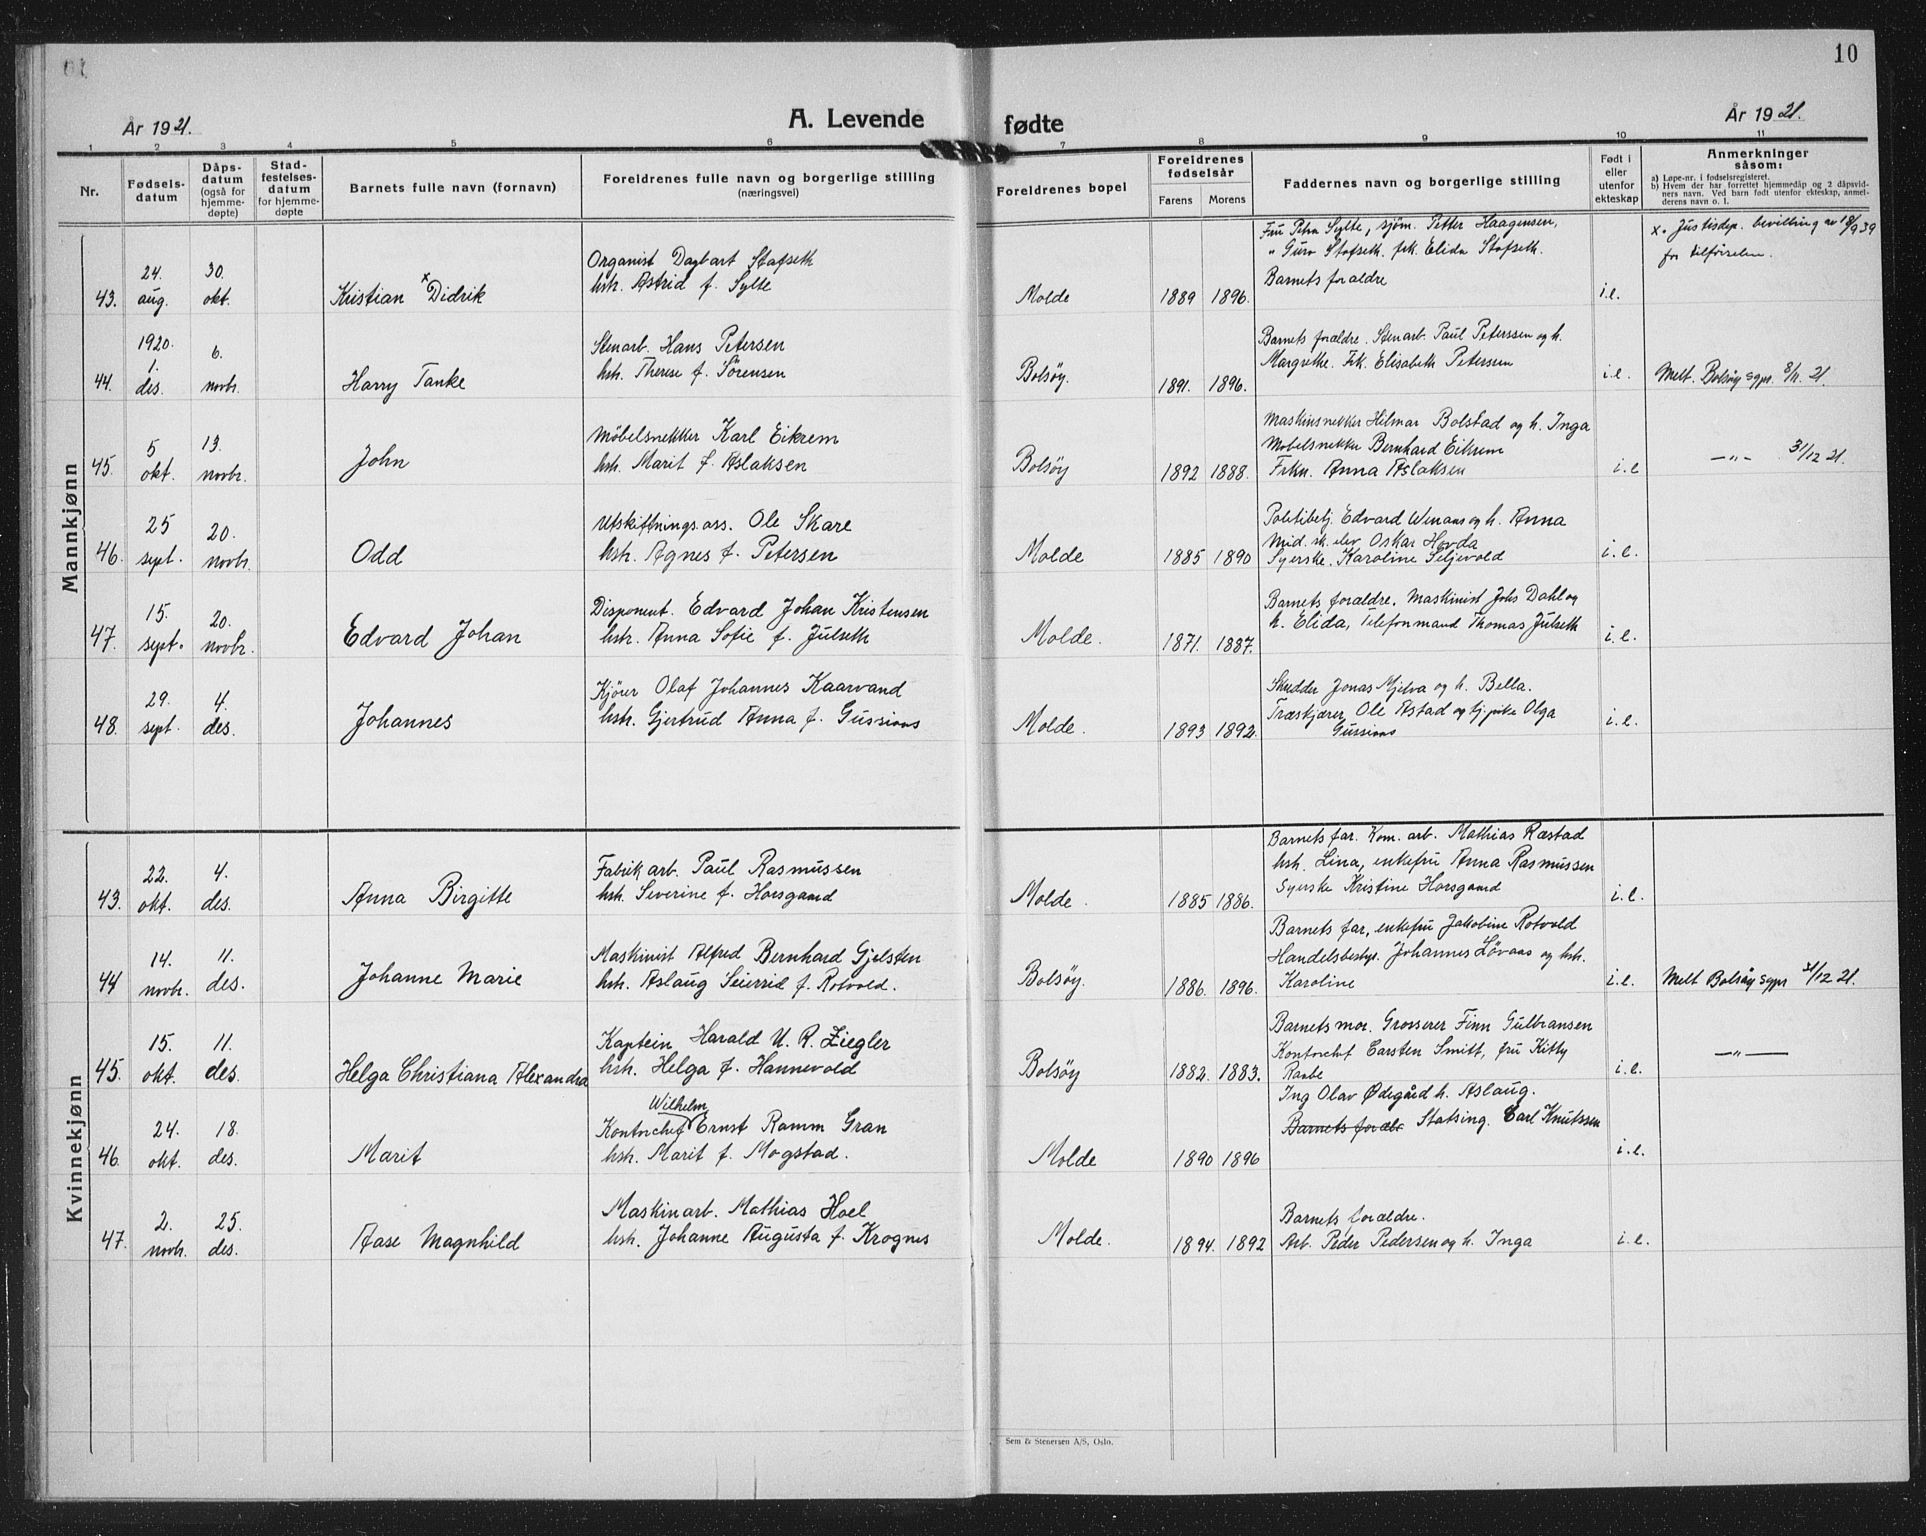 10
År 1921.
A. Levende fødte
År 1921.
1 2 3 4 5 6 7 8 9 10 11
Nr.
Fødsels-
datum
Dåps-
datum
(også for
hjemme-
døpte)
Stad-
festelses-
datum
for hjemme-
døpte
Barnets fulle navn (fornavn)
Foreldrenes fulle navn og borgerlige stilling
(næringsvei)
Foreldrenes bopel
Foreldrenes
fødselsår
Farens Morens
Faddernes navn og borgerlige stilling
Født i
eller
utenfor
ekteskap
Anmerkninger
såsom:
a) Løpe-nr. i fødselsregisteret.
b) Hvem der har forrettet hjemmedåp og 2 dåpsvid-
ners navn. Ved barn født utenfor ekteskap, anmel-
derens navn o. l.
Mannkjønn
43.
24.
aug.
30.
okt.
Kristian x Didrik
Organist Dagbart Stafseth
hstr. Astrid f. Sylte
Molde
1889 1896.
Fru Petra Sylte, sjøm. Petter Haagensen,
" Guro Stafseth. frk. Elida Stafseth.
Barnets foraldre
i.e.
x. Justisdep. bevilling av 18/9 39
for tilførselen.
44.
1920.
1.
des.
6.
novbr.
Harry Tanke
Stenarb. Hans Petersen
hstr. Therese f. Sörensen
Bolsöy.
1891. 1896.
Barnets foraldre. Stenarb. Paul Peterssen og h.
Margrethe. Frk. Elisabeth Peterssen
i.e.
Melt. Bolsöy sgpr. 8/11. 21.
45.
5
okt.
13.
novbr.
John
Møbelsnekker Karl Eikrem
hstr. Marit f. Aslaksen
Bolsöy
1892 1888.
Maskinsnekker Hilmar Bolstad og h. Inga
Møbelsnekker Bernhard Eikrem
Frkn. Anna Aslaksen
i.e
—"— 31/12 21.
46.
25
sept.
20.
novbr.
Odd
Utskiftnings.ass. Ole Skare
hstr. Agnes f. Petersen
Molde
1885 1890
Politibetj. Edvard Wenaas og h. Anna
Mid. sk. elev Oskar Hovda
Syerske. Karoline Seljevold
i.e.
47.
15.
sept.
20.
novbr.
Edvard Johan
Disponent. Edvard Johan Kristensen
hstr. Anna Sofie f. Julseth
Molde.
1871. 1887.
Barnets foraldre. Maskinist Johs Dahl og
h. Elida, Telefonmand Thomas Julseth
i.e.
48.
29.
sept.
4.
des.
Johannes
Kjører Olaf Johannes Kaarvand
hstr. Gjertrud Anna f. Gussiaas
Molde.
1893 1892.
Skredder Jonas Mjelva og h. Bella.
Træskjærer Ole Astad og tj.pike Olga
Gussiaas
i.e.
Kvinnekjønn
43.
22.
okt.
4.
des.
Anna Birgitte
Fabrik arb. Paul Rasmussen
hstr. Severine f. Horsgaard
Molde.
1885 1886.
Barnets far. Kom. arb. Mathias Ræstad
hstr. Lina, enkefru Anna Rasmussen
Syerske Kristine Horsgaard
i.e.
44
14.
novbr.
11.
des.
Johanne Marie
Maskinist Alfred Bernhard Gjelsten
hstr. Aslaug Seierrid f. Rotvold.
Bolsöy.
1886. 1896.
Barnets far, enkefru Jakobine Rotvold
Handelsbestyr. Johannes Løvaas og hstr.
Karoline
i.e.
Melt Bolsöy sgpr 31/12 21.
45.
15.
okt.
11.
des.
Helga Christiana Alexandra
Kaptein Harald U. R. Ziegler
hstr. Helga f. Hannevold
Bolsöy
1882. 1883.
Barnets mor. Grosserer Finn Gulbransen
Kontorchef Carsten Smitt, fru Kitty
Raabe
i.e.
—"—
46.
24.
okt.
18.
des.
Marit
Wilhelm
Kontorchef Ernst Ramm Gran
hstr. Marit f. Mogstad.
Molde
1890 1896
Ing Olav Ødegård h. Aslaug.
Barnets foræl Statsing. Carl Knutssen
i.e.
47.
2.
novbr.
25.
des.
Aase Magnhild
Maskinarb. Mathias Hoel
hstr. Johanne Augusta f. Krognes
Molde.
1894. 1892
Barnets foraldre.
Arb. Peder Pedersen og h. Inga
i.e.
Sem & Stenersen A/S, Oslo.